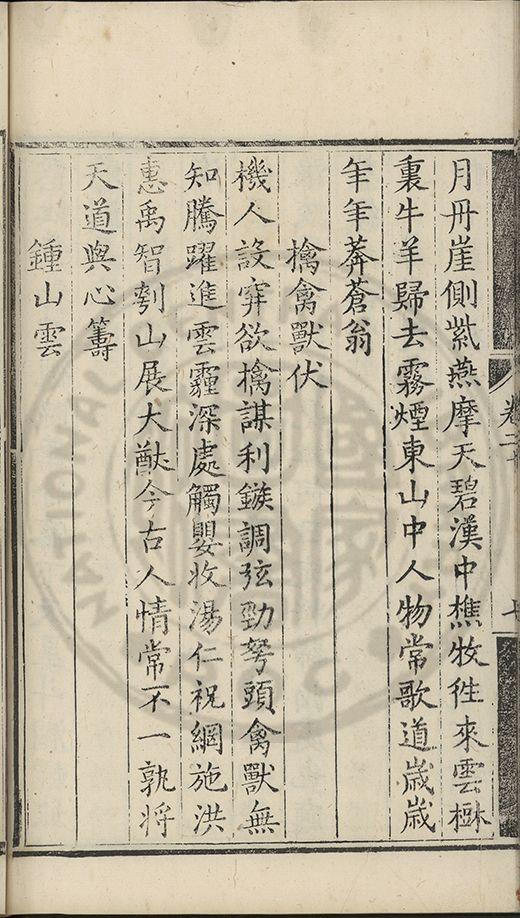 月丹崖側紫燕摩天碧漢中樵牧徃來雲樹
裏牛羊歸去霧煙東山中人物常歌道歲歲
年年莽蒼翁
擒禽獸伏
機人設穽欲擒謀利鏃調弦勁弩頭禽獸無
知騰躍進雲霾深處觸嬰收湯仁祝網施洪
惠禹智刳山展大猷今古人情常不一孰將
天道與心籌
鍾山雲